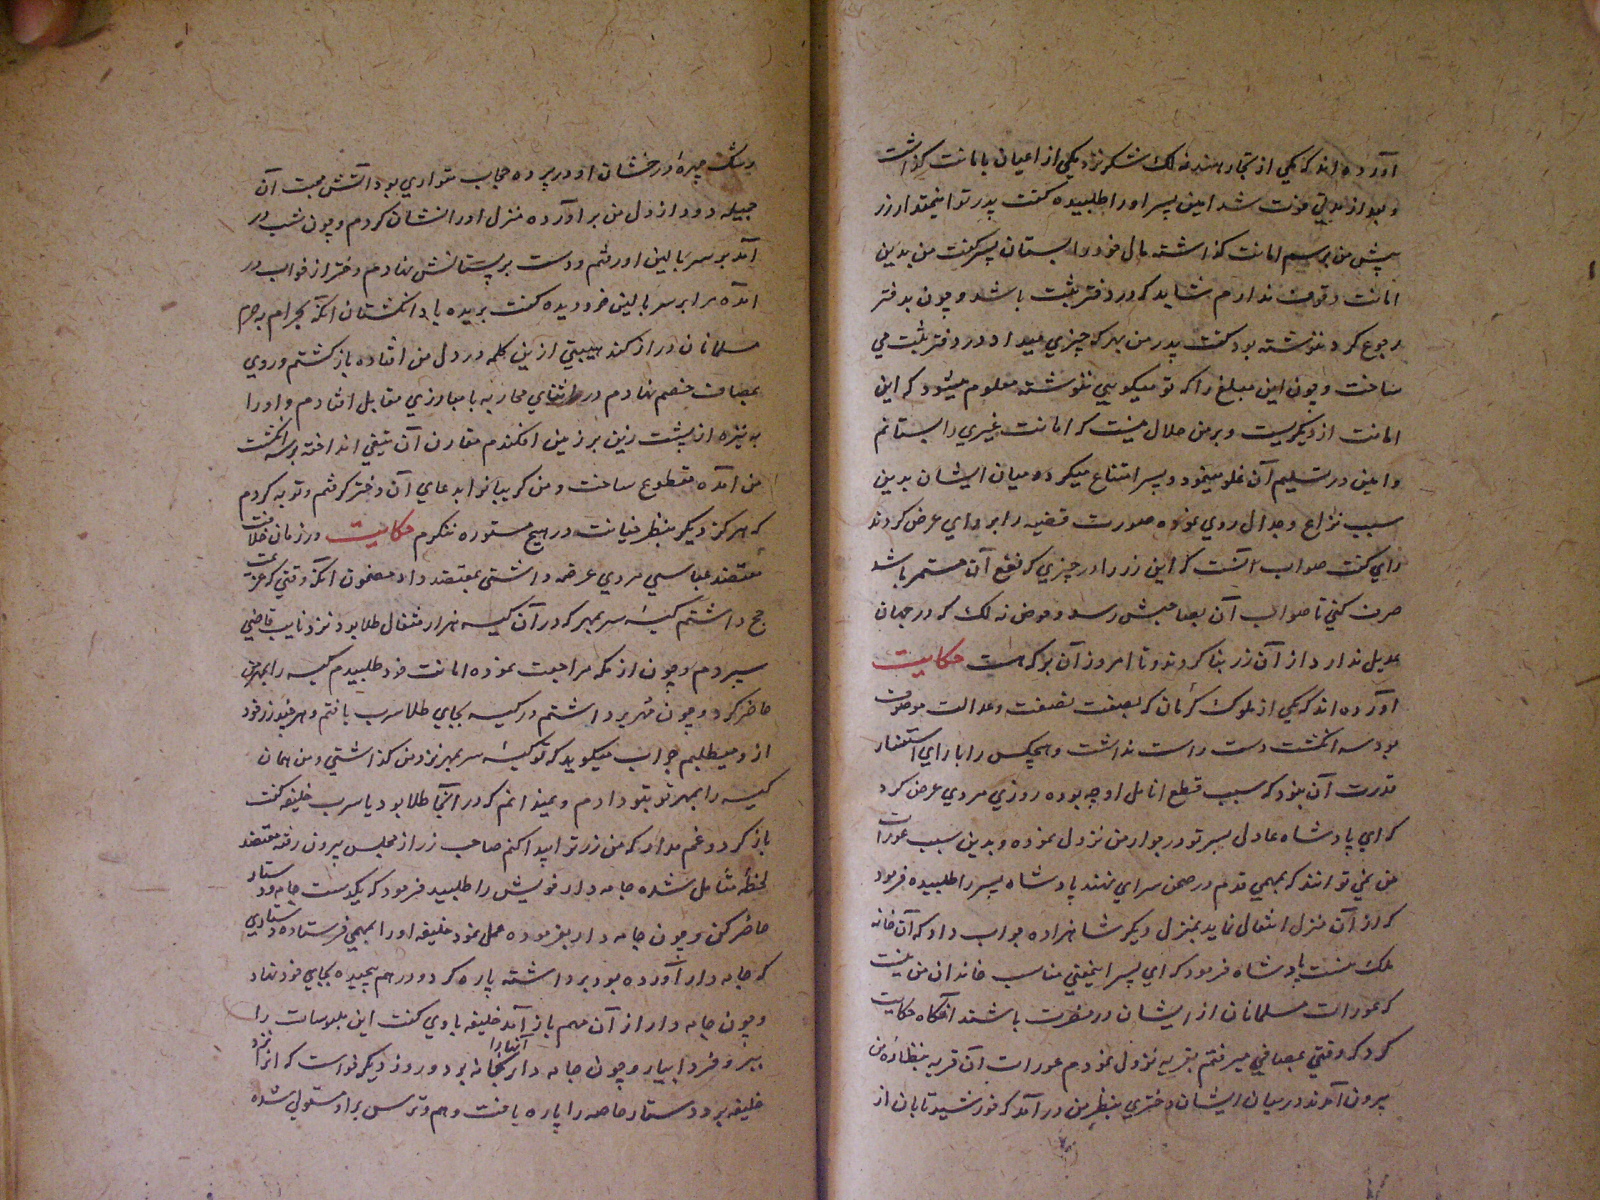 آورده اند که یکی از تجار هند نه لک شکر نزد یکی از اعیان بامانت گذاشت
و بعد از مدتی فوت شد امین پسر او را طلبیده گفت پدر تو اینمقدار زر
پیش من برسم امانت گذاشته مال خود وابستان پسر گفت من بدین
امانت وقوف ندارم شاید که در دفتر ثبت باشد و چون بدفتر
رجوع کرد ننوشته بود گفت پدر من بهر که چیزی میداد در دفتر ثبت می
ساخت و چون این مبلغ را که تو میگویی ننوشته معلوم میشود که این
امانت از دیگریست و بر من حلال نیست که امانت غیری را بستانم
و امین در تسلیم آن غلو مینمود و پسر امتناع میکرد و میان ایشان بدین
سبب نزاع و جدال روی نموده صورت قضیه را برای عرض کردند
رای گفت صواب آنست که این زر را در چیزی که نفع آن مستمر باشد
صرف کنی تا صواب آن بصاحبش رسد و حوض نه لک که در جهان
عدیل ندارد از آن زر بنا کردند و تا امروز آن برکه هست حکایت
آورده اند که یکی از ملوک کرمان که بصفت نصفت و عدالت موصوف
بود سه انگشت دست راست نداشت و هیچکس را یارای استفسار
قدرت آن نبود که سبب قطع انامل او چه بوده روزی مردی عرض کرد
که ای پادشاه عادل پسر تو در جوار من نزول نموده و بدین سبب عورات
من نمی توانند که بمهمی قدم در صحن سرای نهند پادشاه پسر را طلبیده فرمود
که از آن منزل انتقال نماید بمنزل دیگر شاهزاده جواب داد که آن خانه
ملک منست پادشاه فرمود که ای پسر اینمعنی مناسب خاندان من نیست
که عورات مسلمانان از ایشان در مضرت باشند آنگاه حکایت
کرد که وقتی بمصافی میرفتم بقریه نزول نمودم عورات آن قریه بنظاره من
بیرون آمدند در میان ایشان دختری بنظر من درآمد که خورشید تابان از
رشک چهرهٔ درخشان او در پرده حجاب متواری بود آتش محبت آن
جمیله دود از دل من برآورده منزل او را نشان کردم و چون شب در
آمد بر سر بالین او رفتم و دست بر پستانش نهادم دختر از خواب در
آمده مرا بر سر بالین خود دیده گفت بریده باد انگشتان آنکه بحرام به حرم
مسلمانان دراز کند هیبتی ازین کلمه در دل من افتاده باز گشتم و روی
بمصاف خصم نهادم در اثنای محاربه با مبارزی مقابل افتادم و او را
به نیزه از پشت زین بر زمین افکندم مقارن آن تیغی انداخته بر سه انگشت
من آمده مقطوع ساخت و من گریبانو ا بدعای آن دختر گرفتم و توبه کردم
که هرگز دیگر بنظر خیانت در هیچ مستوره ننگرم حکایت در زمان خلافت
معتضد عباسی مردی عرضه داشتی بمعتضد داد مضمون آنکه وقتی که عزیمت
حج داشتم کیسهٔ سربمهر که در آن کیسه هزار مثقال طلا بود نزد نایب قاضی
سپردم و چون از مکه مراجعت نموده امانت خود طلبیدم کیسه را بمهر من
حاضر کرد و چون مهر برداشتم در کیسه بجای طلا سرب یافتم و هر چند زر خود
از و میطلبم جواب میگوید که تو کیسهٔ سربمهر نزد من گذاشتی و من همان
کیسه را بمهر تو بتو دادم و نمیدانم که در آنجا طلا بود یا سرب خلیفه گفت
باز گرد و غم مدار که من زر ترا پیدا کنم صاحب زر از مجلس بیرون رفته معتضد
لحظهٔ متأمل شده جامه دار خویش را طلبید فرمود که یکدست جامه و دستار
حاضر کن و چون جامه دار بفرموده عمل نمود خلیفه او را بمهمی فرستاده دستاری
که جامه دار آورده بود برداشته پاره کرد و در هم پیچیده بجای خود نهاد
و چون جامه دار از آن مهم باز آمد خلیفه با وی گفت این ملبوسات را
ببر و فردا بیار و چون جامه دار آنها را بخانه برد و روز دیگر خواست که از نزد
خلیفه برد دستار خاصه را پاره یافت و هم و ترس بر او مستولی شده